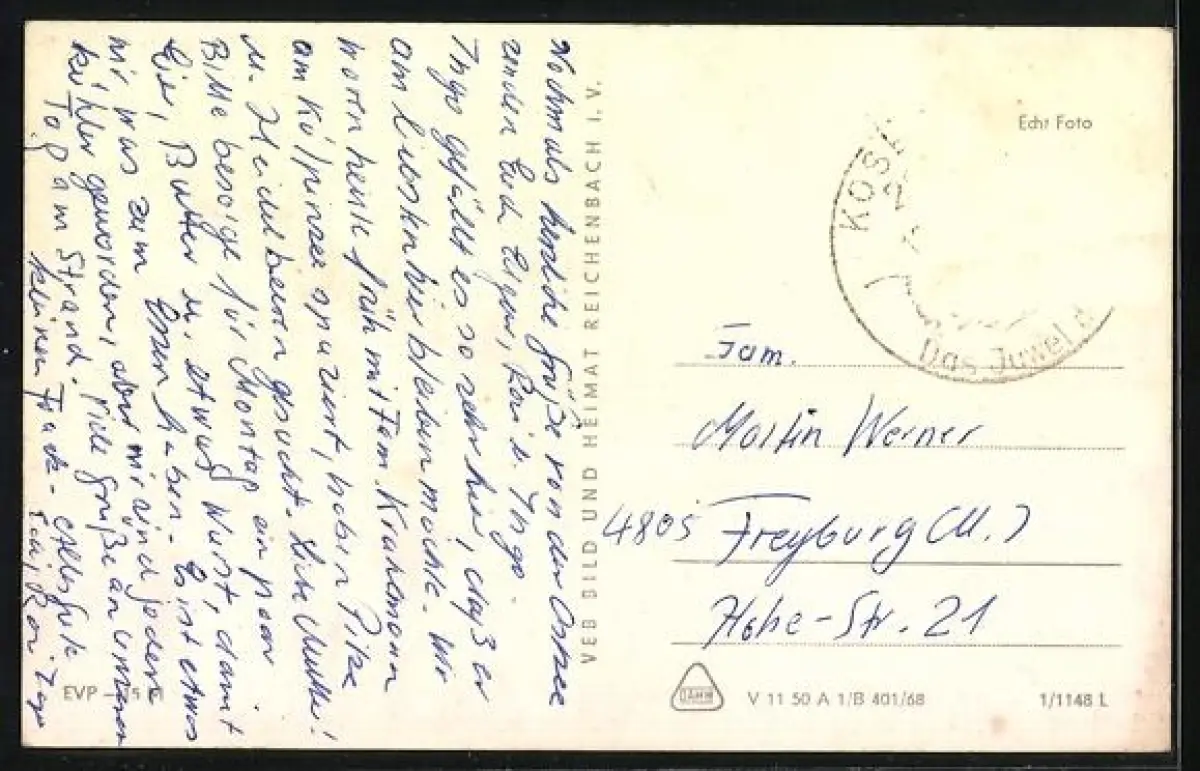 Nochmals herzliche Grüße von der Ostsee
senden Euch Edgar, Rosi u. Ingo.
Ingo gefällt es so sehr hier, daß er
am liebsten hier bleiben möchte. Wir
waren heute früh mit Fam. Krahmann
am Kölpinsee spaziert, haben Pilze
u. Heidelbeeren gesucht. Liebe Mutti!
Bitte besorge für Montag ein paar
Eier, Butter u. etwas Wurst, damit
wir was zum Essen haben. Es ist etwas
kühler geworden, aber wir sind jeden
Tag am Strand. Viele Grüße an unseren
kleinen Alles Gute
Edi, Rosi, Ingo
VEB BILD UND HEIMAT REICHENBACH I. V.
Echt Foto
KOS
Das Juwel
Fam.
Martin Werner
4805 Freyburg (U.)
Hohe-Str. 21
EVP
V 11 50 A 1/B 401/68
1/1148 L